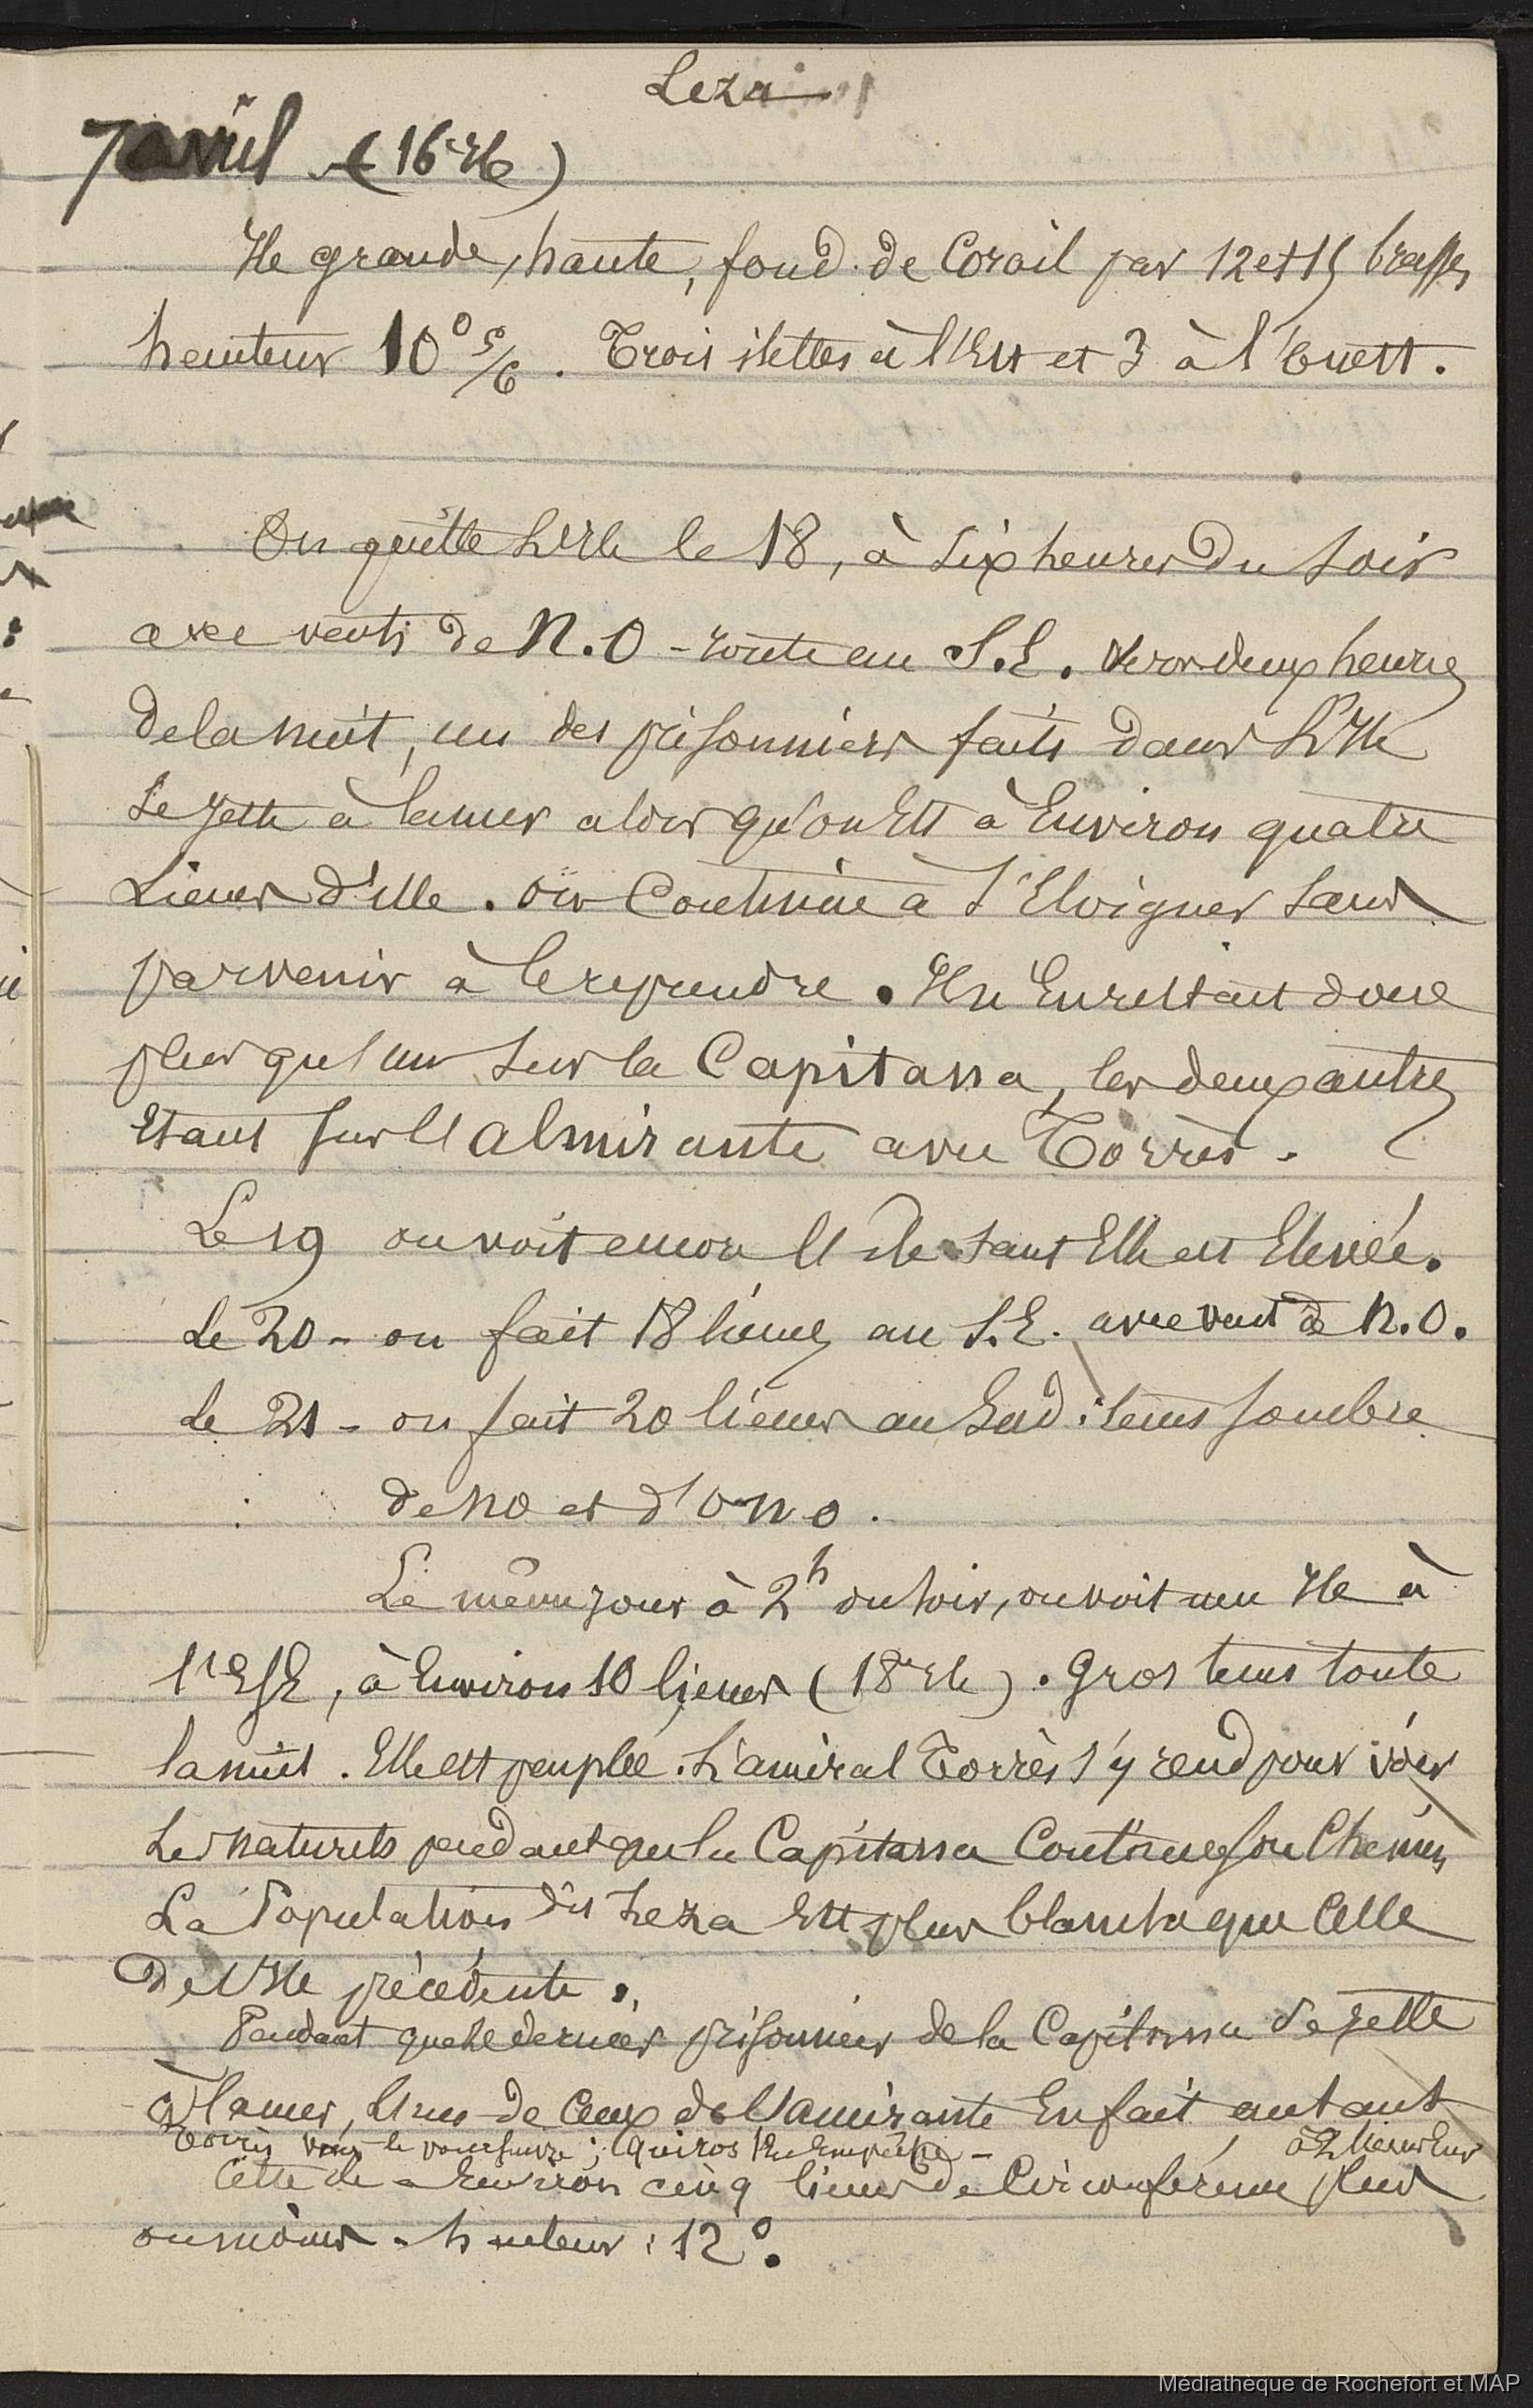 Leza
7 avril (16e Ile)
Ile grande, haute, fond de Corail par 12 et 15 brasses
hauteur 10° 5/6. Trois ilettes à l'Est et 3 à l'Ouest.
On quitte L'Ile le 18, à Six heures Du Soir
avec vents de N.O - route au S.E. Vers deux heures
De la nuit, un des prisonniers faits Dans L'Ile
Se jette à la mer alors qu'on Est à Environ quatre
Lieues d'Elle. On Continue à S'Eloigner Sans
parvenir à le reprendre. Il n'En restait donc
plus qu'un Sur la Capitana, les deux autres
Etant Sur l'Almirante avec Torrès.
Le 19 on voit encore l'île tant Elle est Elevée.
Le 20 - on fait 18 lieues au S.E. avec vent de N.O.
Le 21 - on fait 20 lieues au Sud : tems Sombre
de NO et d'ONO.
Le même jour à 2h du Soir, on voit une Ile à
l'ESE, à Environ 10 lieues (18e Ile). Gros tems toute
la nuit. Elle est peuplée. L'amiral Torrès s'y rend pour voir
Les naturels pendant que la Capitana Continue Son Chemin
La Population de Leza Est plus blanche que Celle
De l'Ile précédente.
Pendant que le dernier prisonnier de la Capitana Se jette
à la mer, l'un de Ceux de l'Amirante En fait autant
Torrès veut le poursuivre ; Quiros l'En Empêche - à 2 lieues Eus
Cette île a Environ cinq lieues De Circonférence plus
ou moins - hauteur : 12°.
Médiathèque de Rochefort et MAP